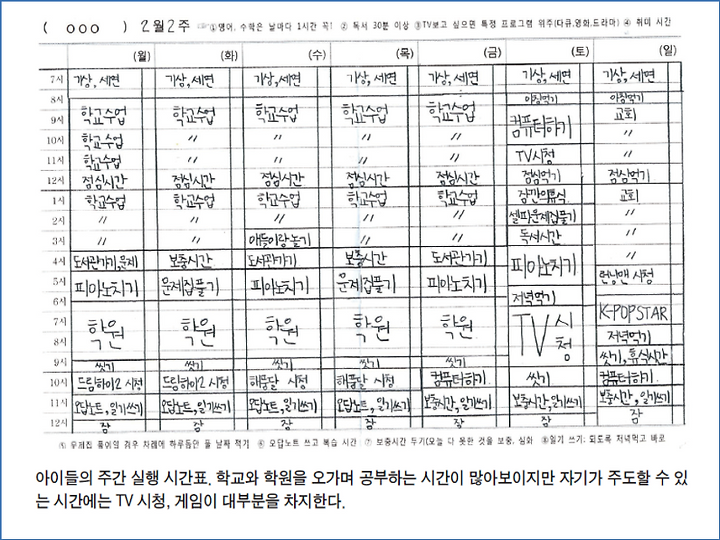 ( ○○○ ) 2월2주 ①영어, 수학은 날마다 1시간 꼭! ② 독서 30분 이상 ③TV보고 싶으면 특정 프로그램 위주(다큐,영화,드라마) ④ 취미 시간
(월) (화) (수) (목) (금) (토) (일)
7시 기상,세면 기상,세면 기상,세면 기상,세면 기상,세면 기상,세면 기상,세면
8시 아침먹기 아침먹기
9시 학교수업 학교수업 학교수업 학교수업 학교수업 컴퓨터하기 교회
10시 학교수업 〃 〃 〃 〃 〃
11시 학교수업 〃 〃 〃 〃 TV시청 〃
12시 점심시간 점심시간 점심시간 점심시간 점심시간 점심먹기 점심먹기
1시 학교수업 학교수업 학교수업 학교수업 학교수업 잠깐의휴식 교회
2시 〃 〃 〃 〃 〃 셀파문제집풀기 〃
3시 〃 〃 애들이랑놀기 〃 〃 독서시간 〃
4시 도서관가기,문제 보충시간 도서관가기 보충시간 도서관가기 피아노치기 〃
5시 피아노치기 문제집풀기 피아노치기 문제집풀기 피아노치기 런닝맨 시청
6시 저녁먹기 K-POPSTAR
7시 학원 학원 학원 학원 학원 TV시청 저녁먹기
8시 씻기,휴식시간
9시 씻기 씻기 씻기 씻기 씻기
10시 드림하이2 시청 드림하이2 시청 해품달 시청 해품달 시청 컴퓨터하기 씻기 컴퓨터하기
11시 오답노트,일기쓰기 오답노트,일기쓰기 오답노트,일기쓰기 오답노트,일기쓰기 보충시간,일기쓰기 보충시간,일기쓰기 보충시간,일기쓰기
12시 잠 잠 잠 잠 잠 잠 잠
⑤ 문제집 풀이의 경우 차례에 하루동안 풀 날짜 적기 ⑥ 오답노트 쓰고 복습 시간 ⑦ 보충시간 두기(오늘 다 못한 것을 보충, 심화 ⑧일기 쓰기: 되도록 저녁먹고 바로
아이들의 주간 실행 시간표. 학교와 학원을 오가며 공부하는 시간이 많아보이지만 자기가 주도할 수 있
는 시간에는 TV 시청, 게임이 대부분을 차지한다.